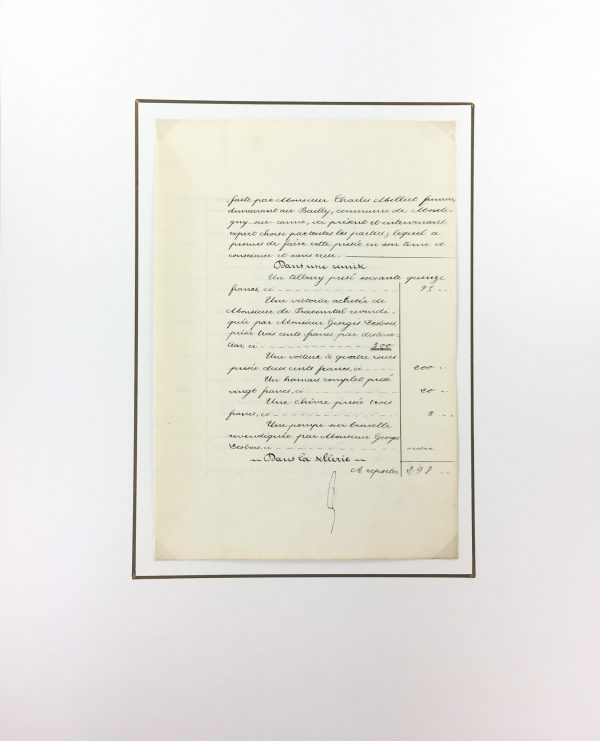 faite par Monsieur Charles Milliet fermier,
demeurant au Bailly, commune de Monti-
gny-sur-canne, ici présent et intervenant
expert choisi par toutes les parties; lequel a
promis de faire cette prisée en son âme et
conscience et sans crue.
Dans une remise
Un tilbury prisé soixante quinze
francs, ci 75
Une victoria achetée de
Monsieur de revendi-
quée par Monsieur Georges Desbois,
prisée trois cents francs par distinc-
tion, ci 300
Une voiture à quatre roues
prisée deux cents francs, ci 200
Un harnais complet prisé
vingt francs, ci 20
Une chèvre prisée trois
francs, ci 3
Une pompe sur brouette
revendiquée par Monsieur Georges
Desbois, ci ordre
Dans la sellerie
A reporter 298